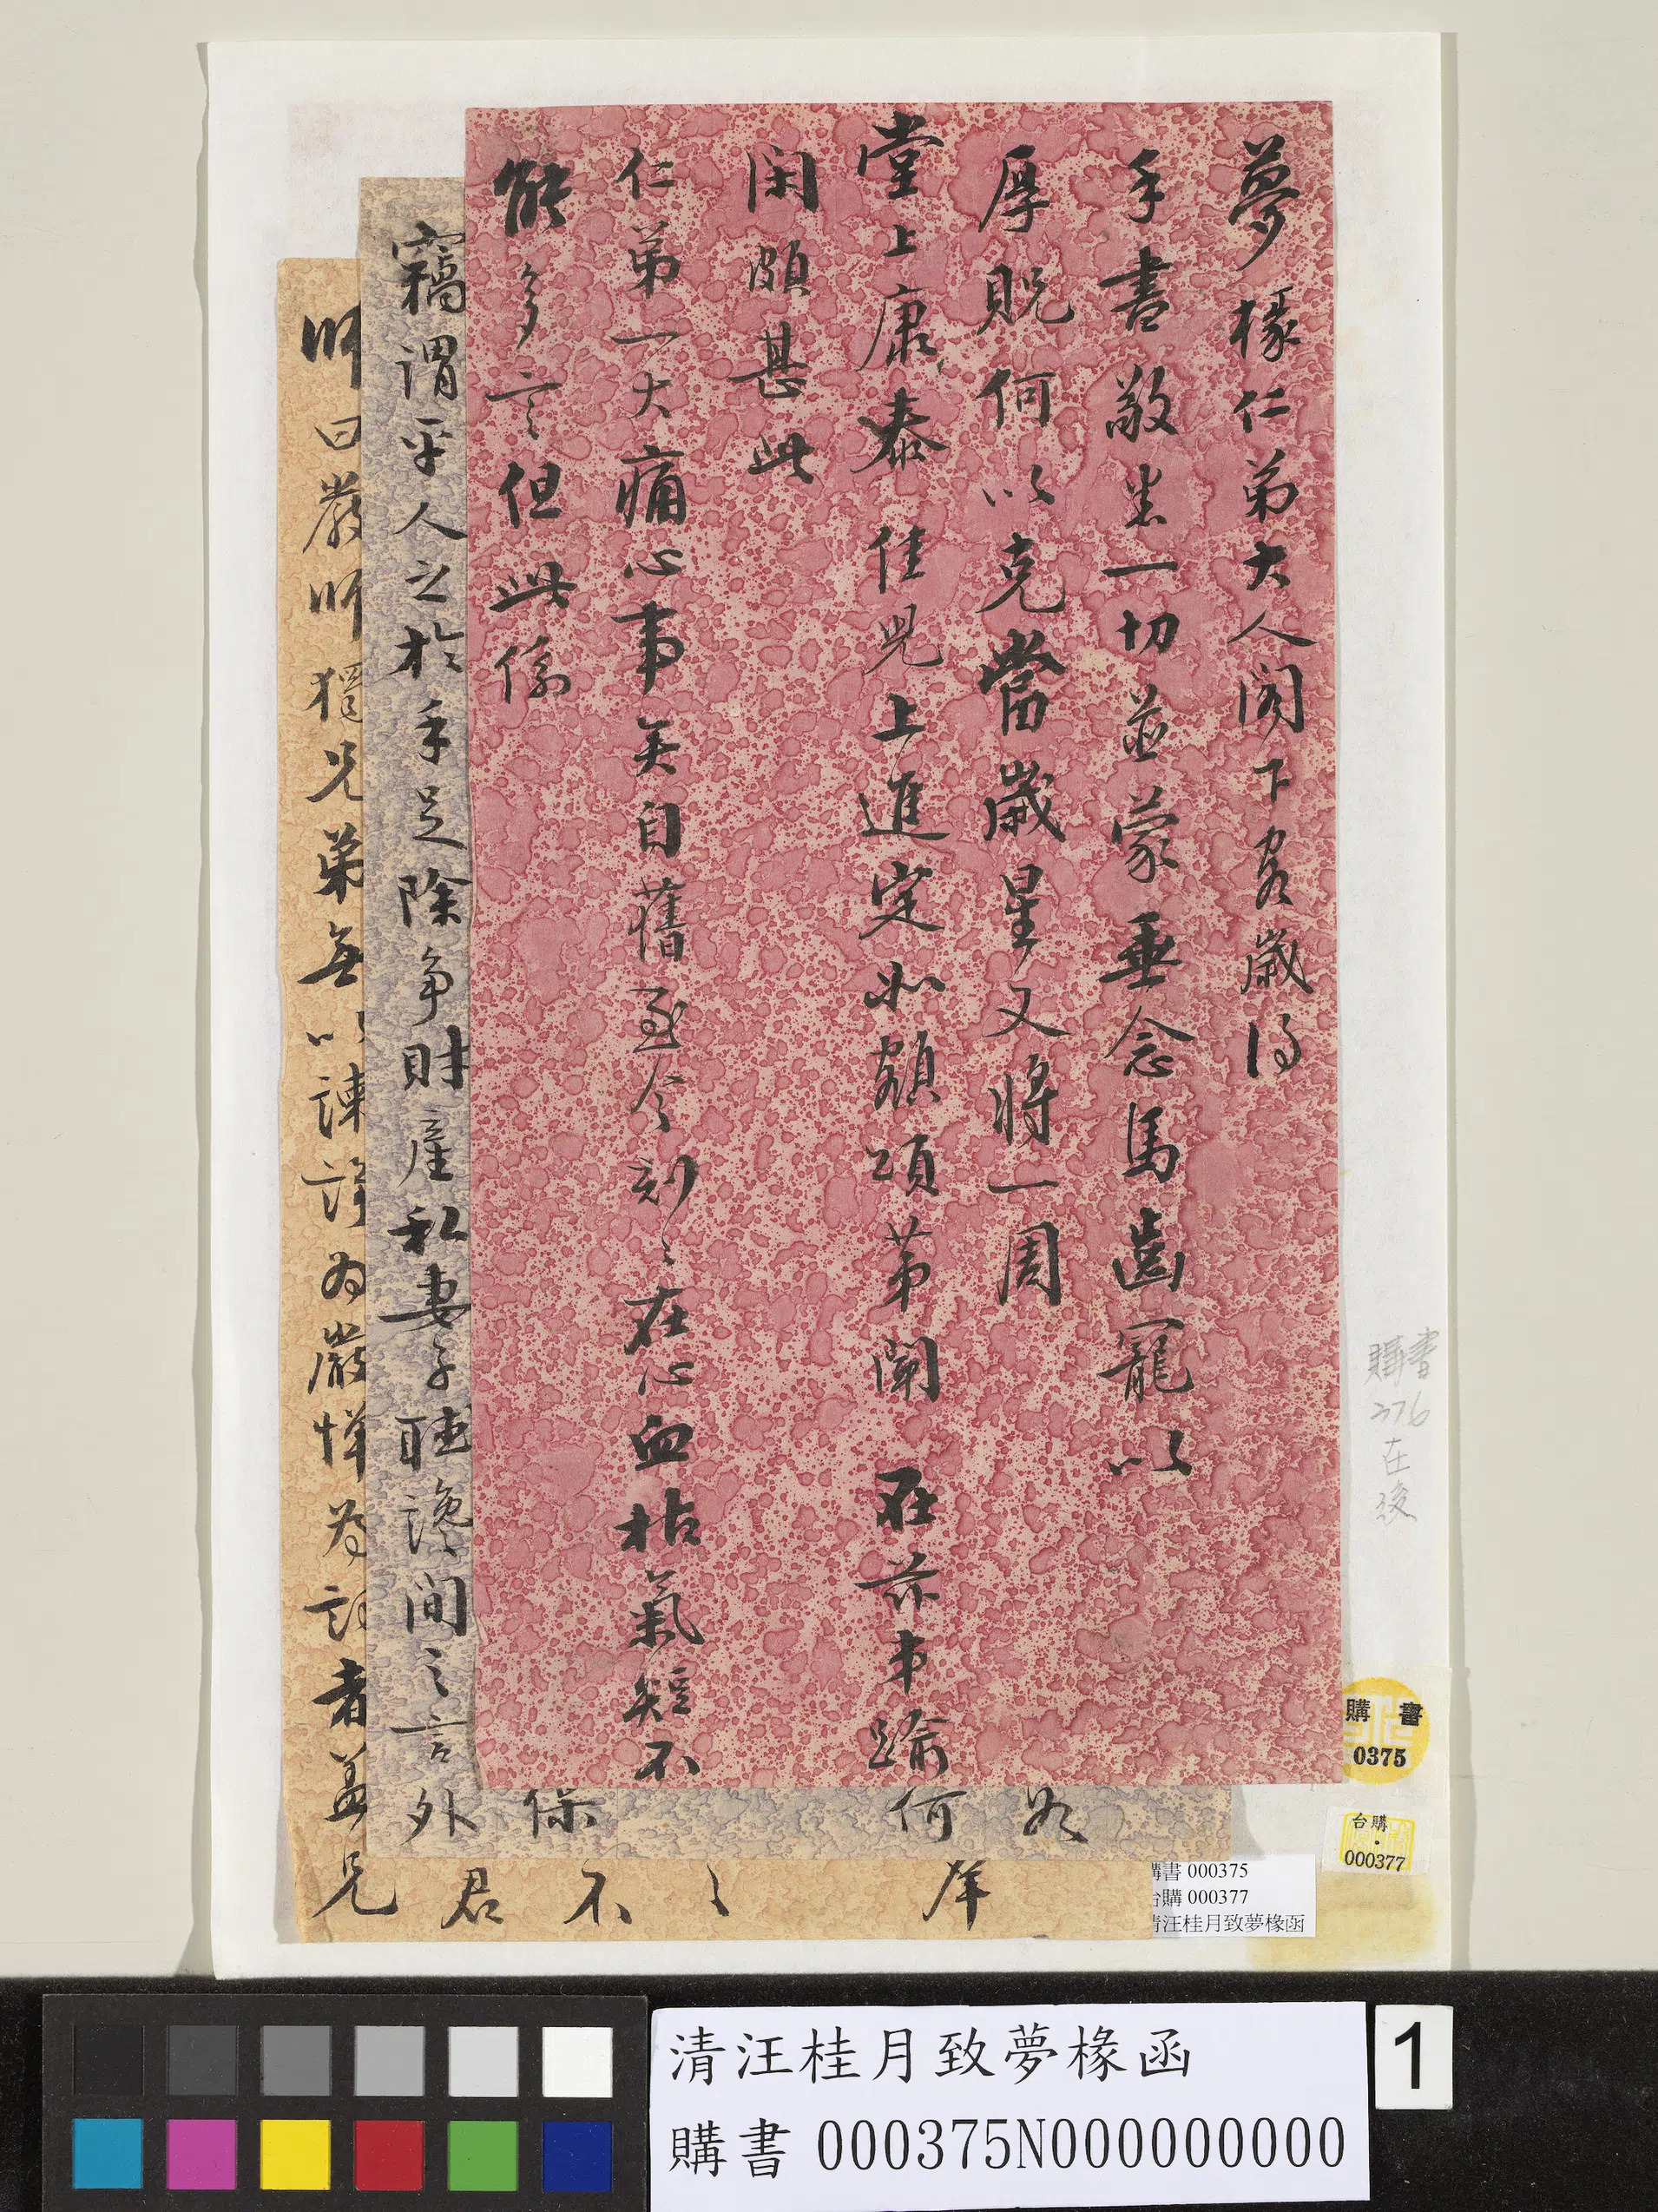 夢椽仁弟大人閣下客歲得
手書敬悉一切並蒙垂念馬齒寵以
厚貺何以克當歲星又將一周
堂上康泰佳兒上進定如額頌第聞在前才踰
閑頗甚此
仁弟一大痛心事矣自舊至今刻刻在心血枯氣短不
能多言但此係
竊謂平人之於手足除爭財產私妻子聽讒間之言外
保
何
以
師曰嚴師獨兄弟無以諫諍為嚴憚為訓者蓋兄
君
不
購書
376
在
後
購書
0375
台購
000377
購書 000375
台購 000377
清汪桂月致夢椽函
清汪桂月致夢椽函
購書 000375N000000000
1